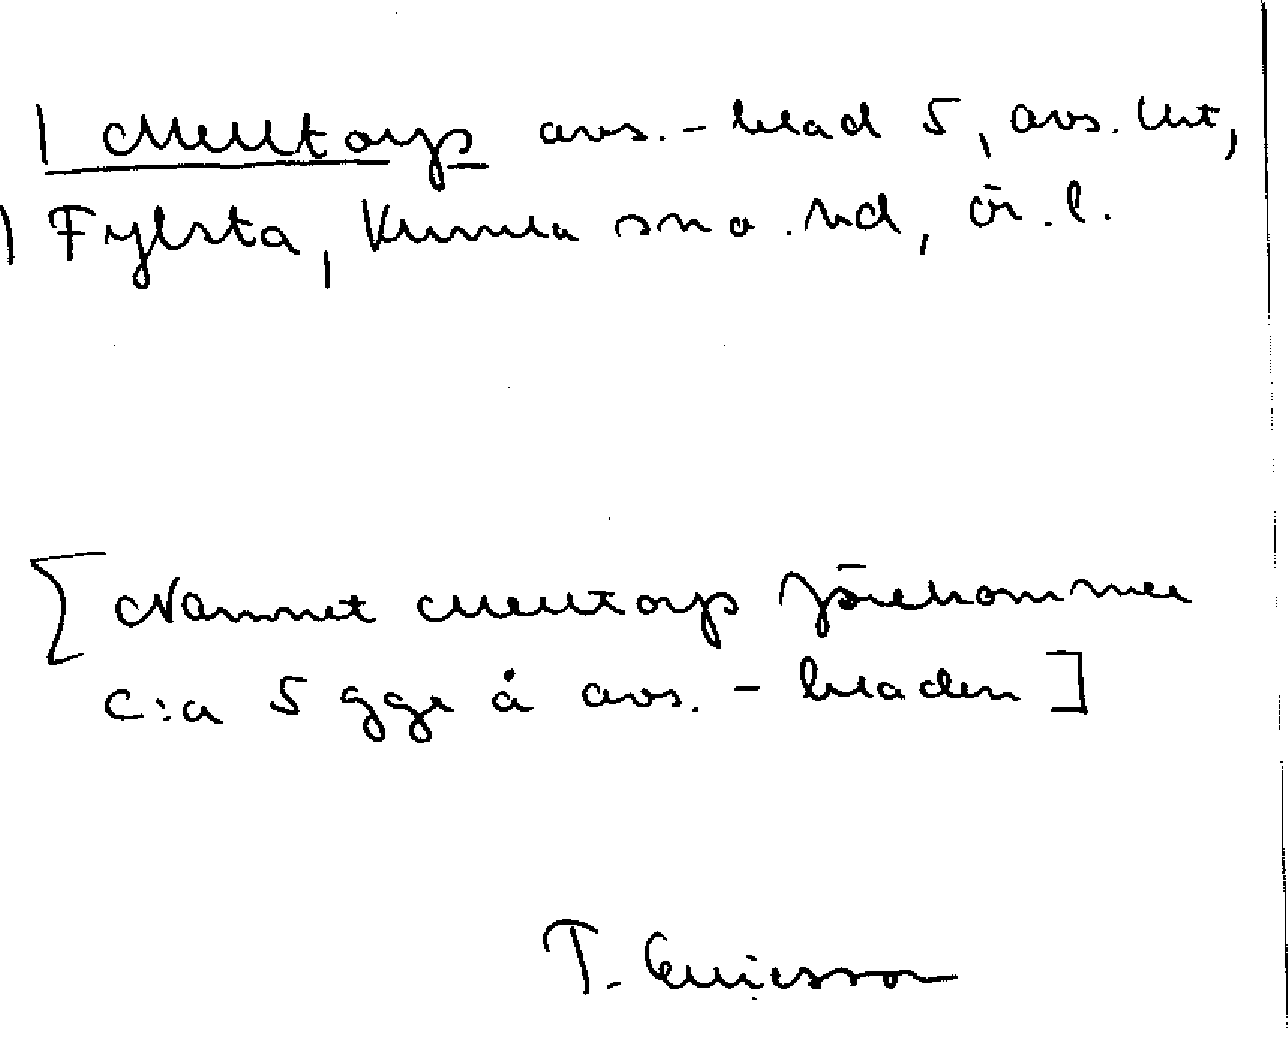 Melltorp avs.-blad 5, avs. lht,
Fylsta, Kumla sn o. hd, ör. l.
[Namnet Melltorp förekommer
c:a 5 ggr å avs. - bladen]
T. Ericsson